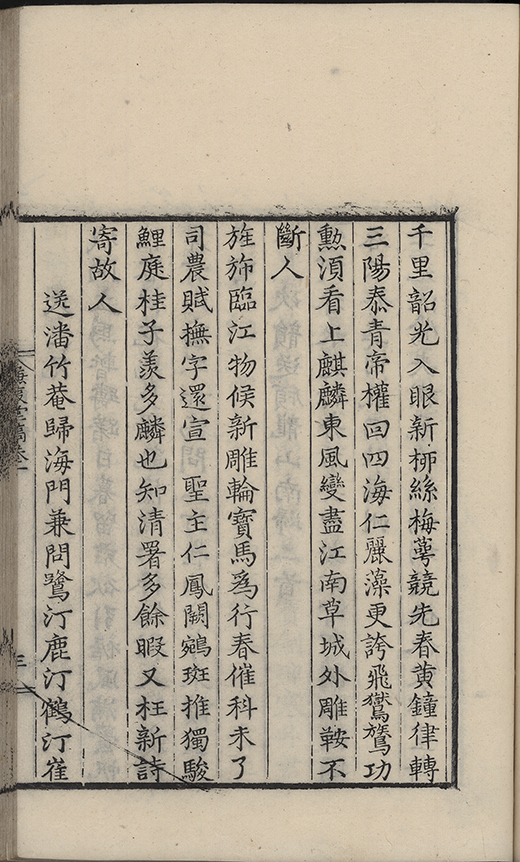 千里韶光入眼新柳絲梅蕚競先春黄鐘律轉
三陽泰青帝權回四海仁麗藻更誇飛鸑鷟功
勲湏看上麒麟東風變盡江南草城外雕鞍不
斷人
旌斾臨江物候新雕輪寶馬爲行春催科未了
司農賦撫字還宣聖主仁鳳闕鵷班推獨駿
鯉庭桂子羨多麟也知清署多餘暇又枉新詩
寄故人
送潘竹菴歸海門兼問鷺汀鹿汀鶴汀崔